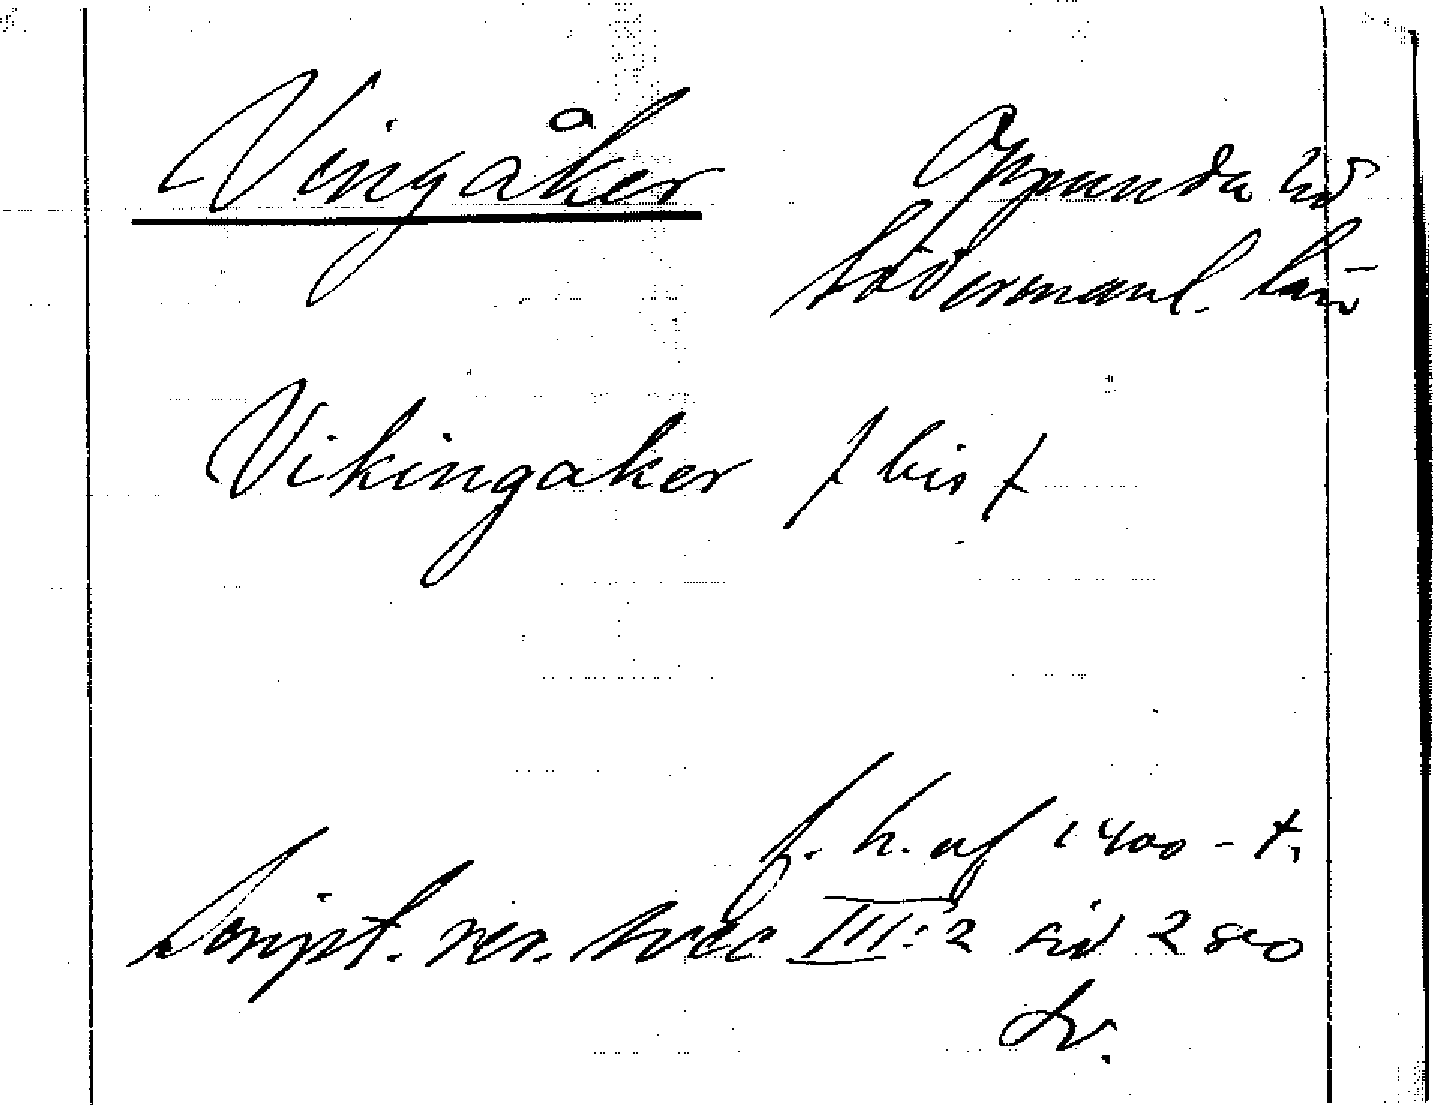 Vingåker Oppunda hd
Södermanl. län
Vikingaker / bis /
f. h. af 1400 - t.
Script. rer. svec III:2 sid 280
Av.